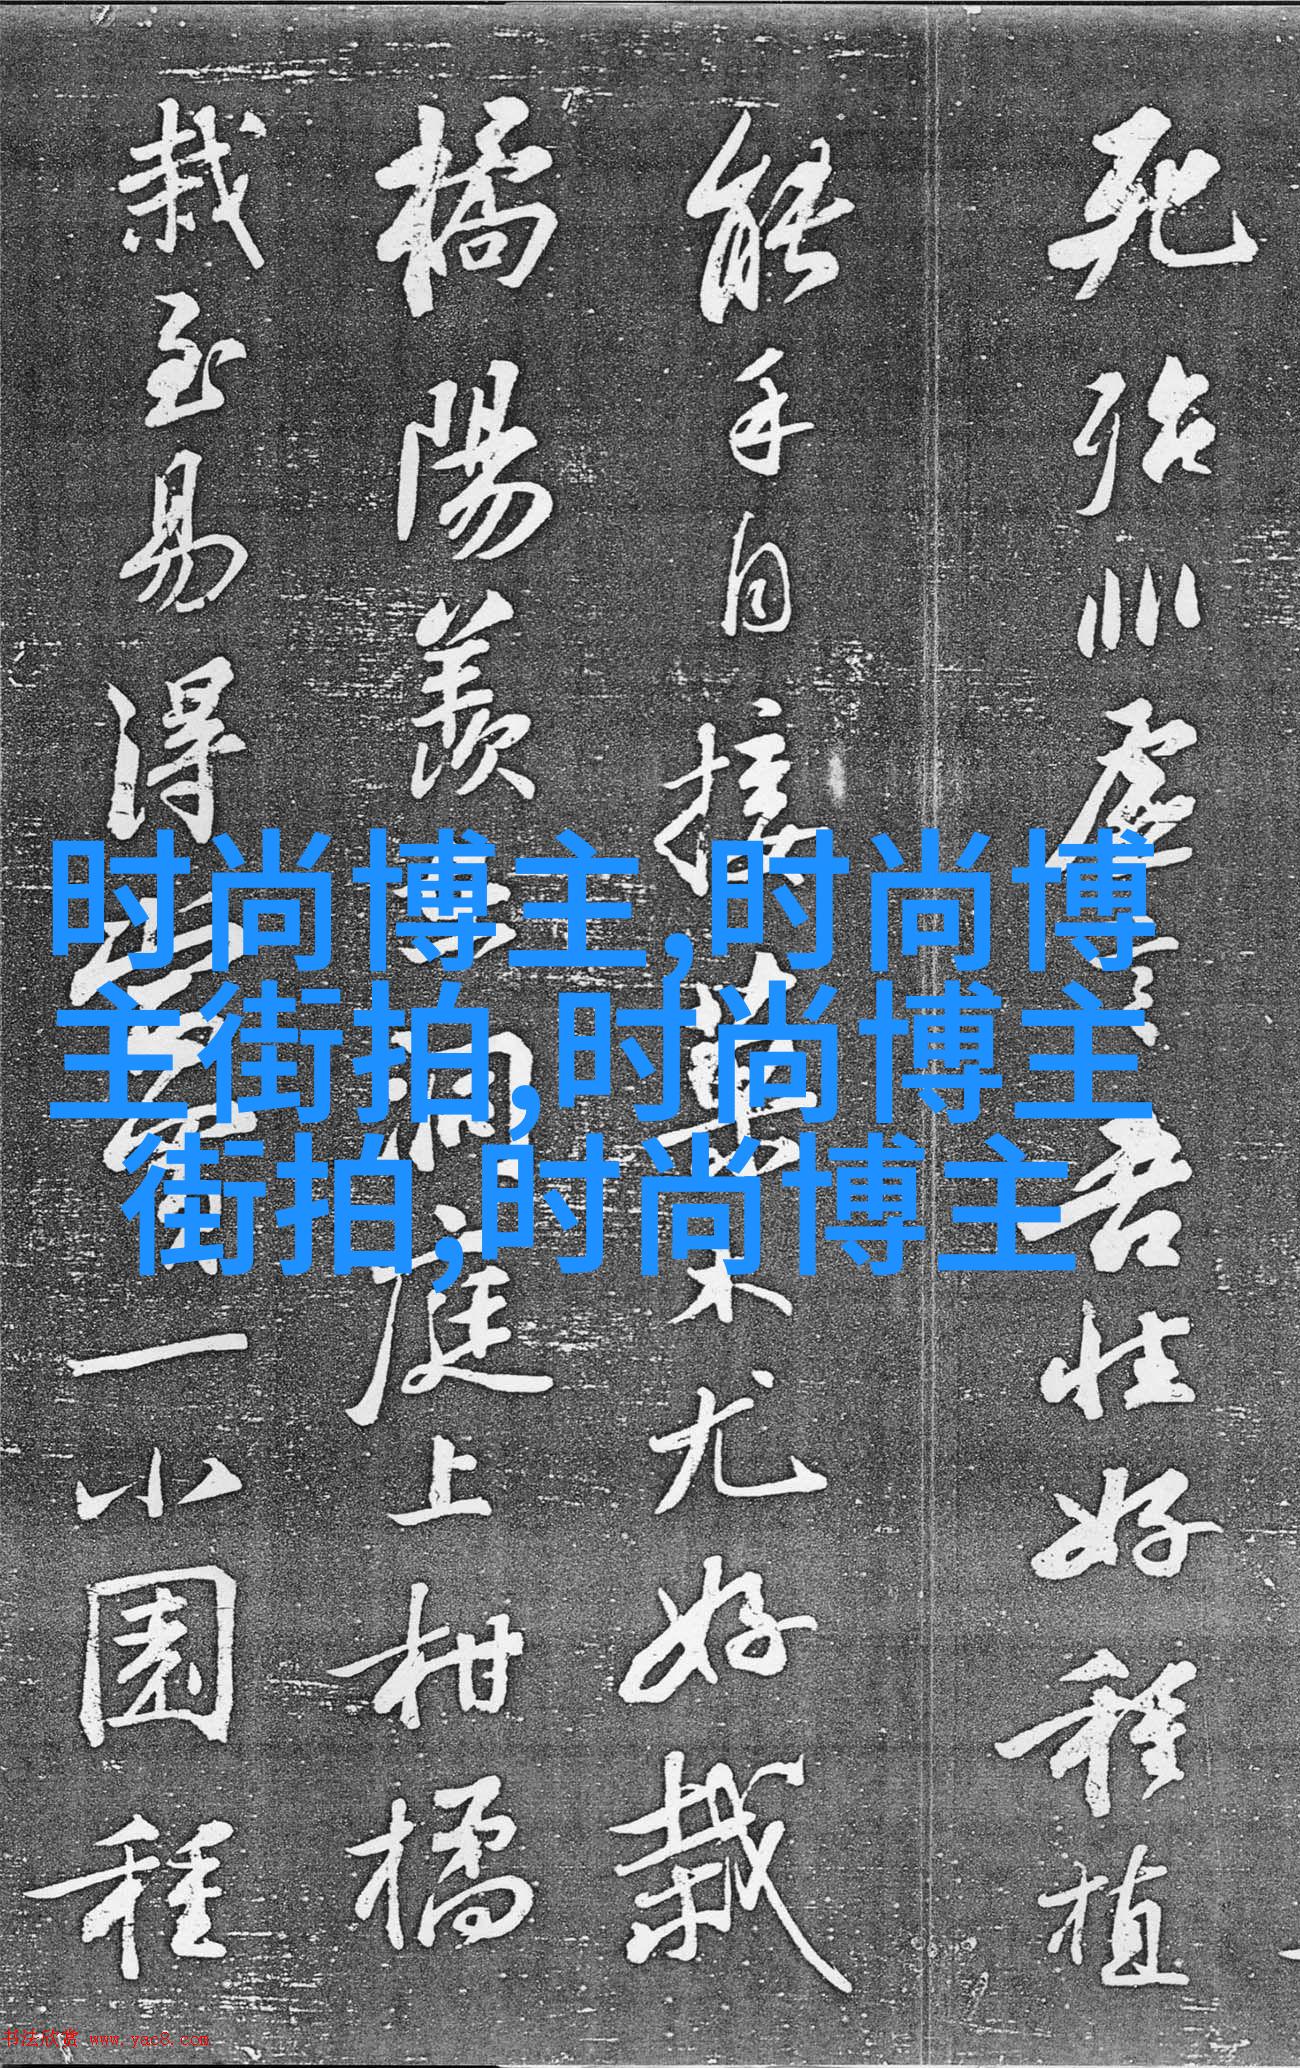 死殆非虛言吾性好種植
能手自接菓木尤好栽
橘陽羨在洞庭上柑橘
栽至易得當買一小園種
时尚博主,时尚博
主街拍,时尚博主
街拍,时尚博主
书法欣赏 www.yac8.com